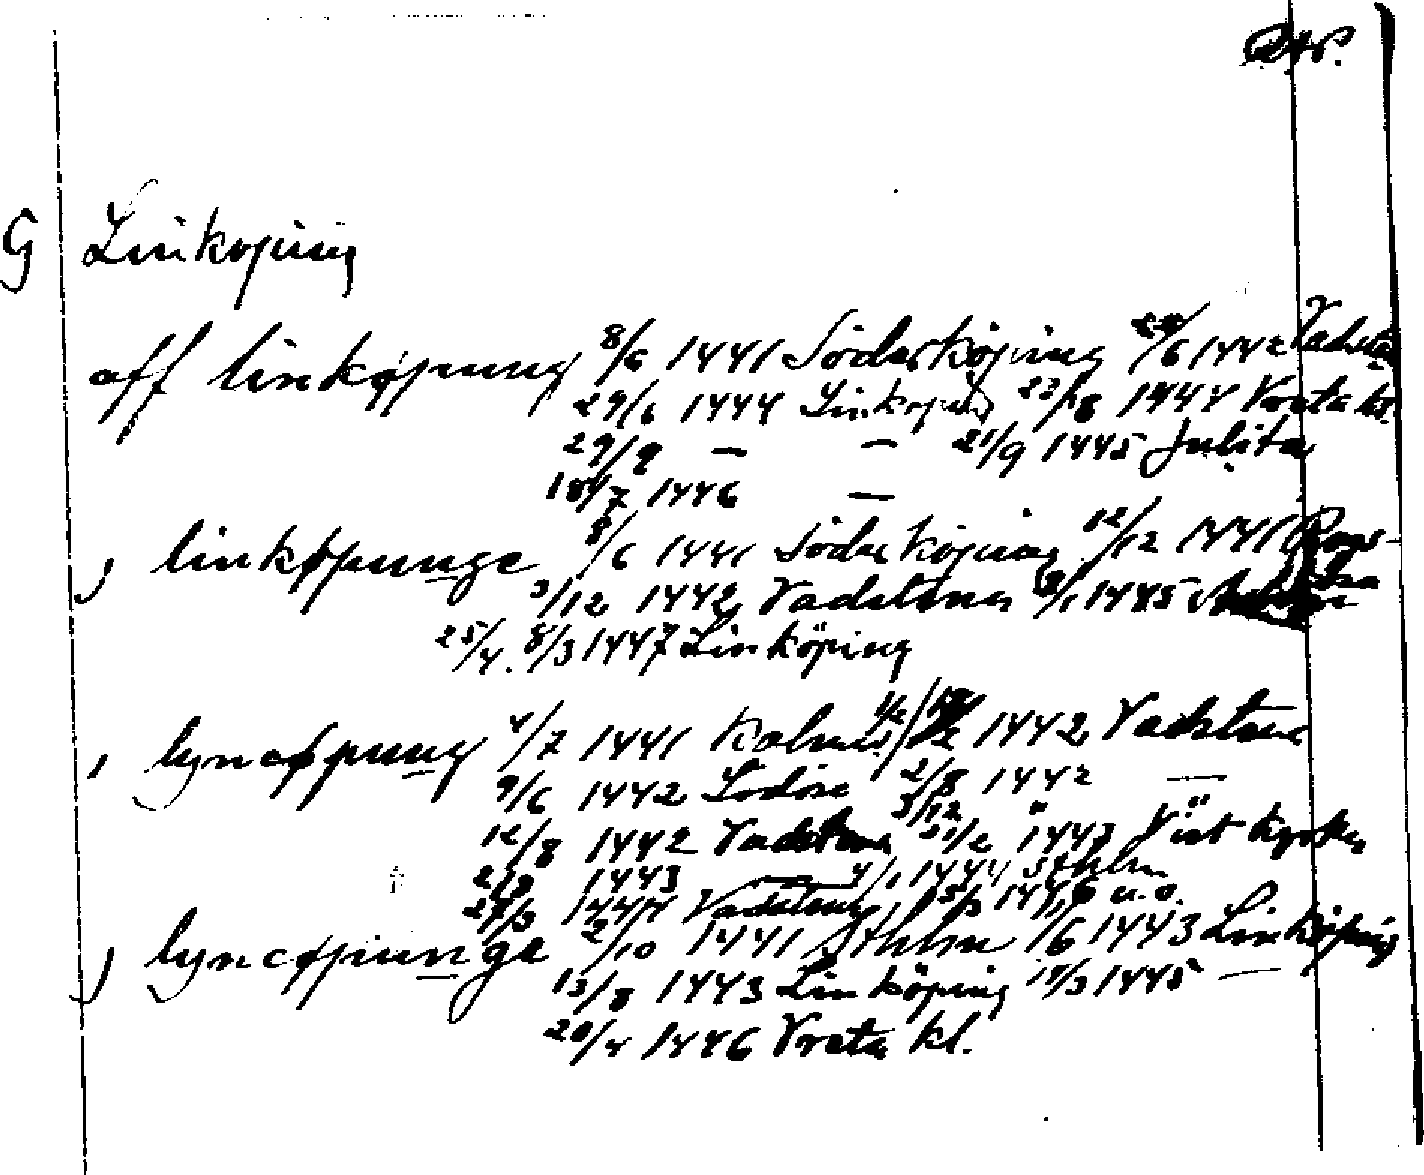 G Linköping
aff linkøpung 8/6 1441 Söderköping /6 1442 Vadstena
29/6 1444 Linköping 22/8 1444 Vreta kl.
29/9 — — 21/9 1445 Julita
18/7 1446 —
, linkøpunge 8/6 1441 Söderköping 12/12 1441
3/12 1442 Vadstena 1445
25/4. 8/3 1447 Linköping
, lyncøpung 4/7 1441 Kalmar 1442 Vadstena
9/6 1442 Lödöse 2/8 1442 —
3/12 "
12/8 1442 Vadstena 1443 Väst kyrka
1443 — 1444 Sthlm
Vadstena u.o.
, lyncøpunge 2/10 1441 Sthlm 1/6 1443 Linköping
13/8 1443 Linköping 17/3 1445 —
20/4 1446 Vreta kl.